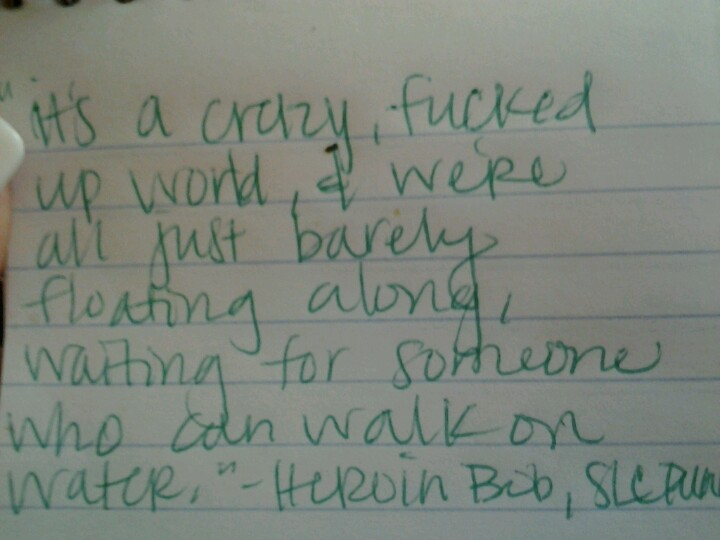 "it's a crazy, fucked
up world, & we're
all just barely
floating along,
waiting for someone
who can walk on
water." - Heroin Bob, SLC Punk